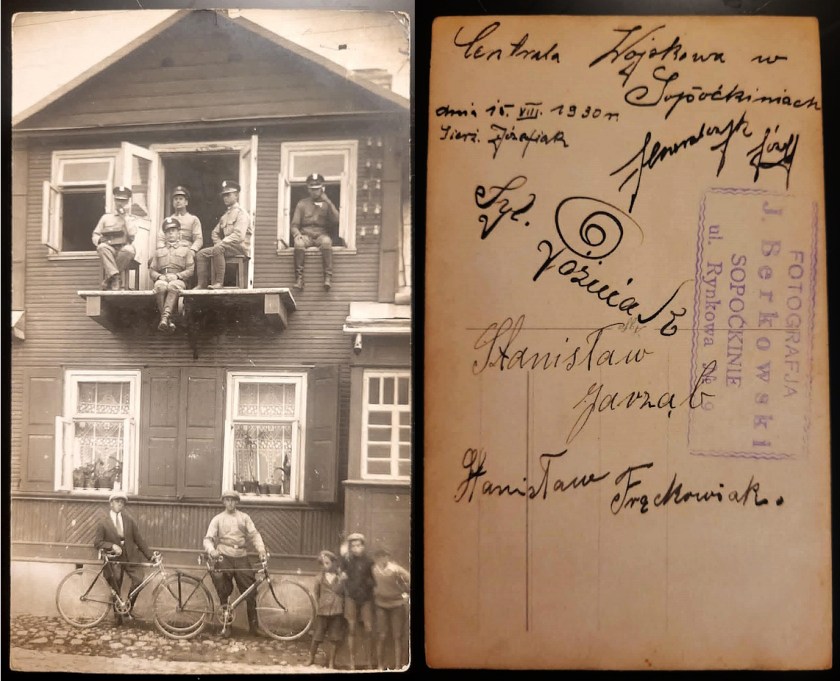 Centrala Wojskowa w
Sopoćkiniach
dnia 15. VIII. 1930 r.
Sierż. Józefiak
Józef
Stanisław
Jarząb
Stanisław Frąckowiak.
FOTOGRAFJA
J. Berkowski
SOPOĆKINIE
ul. Rynkowa № 9